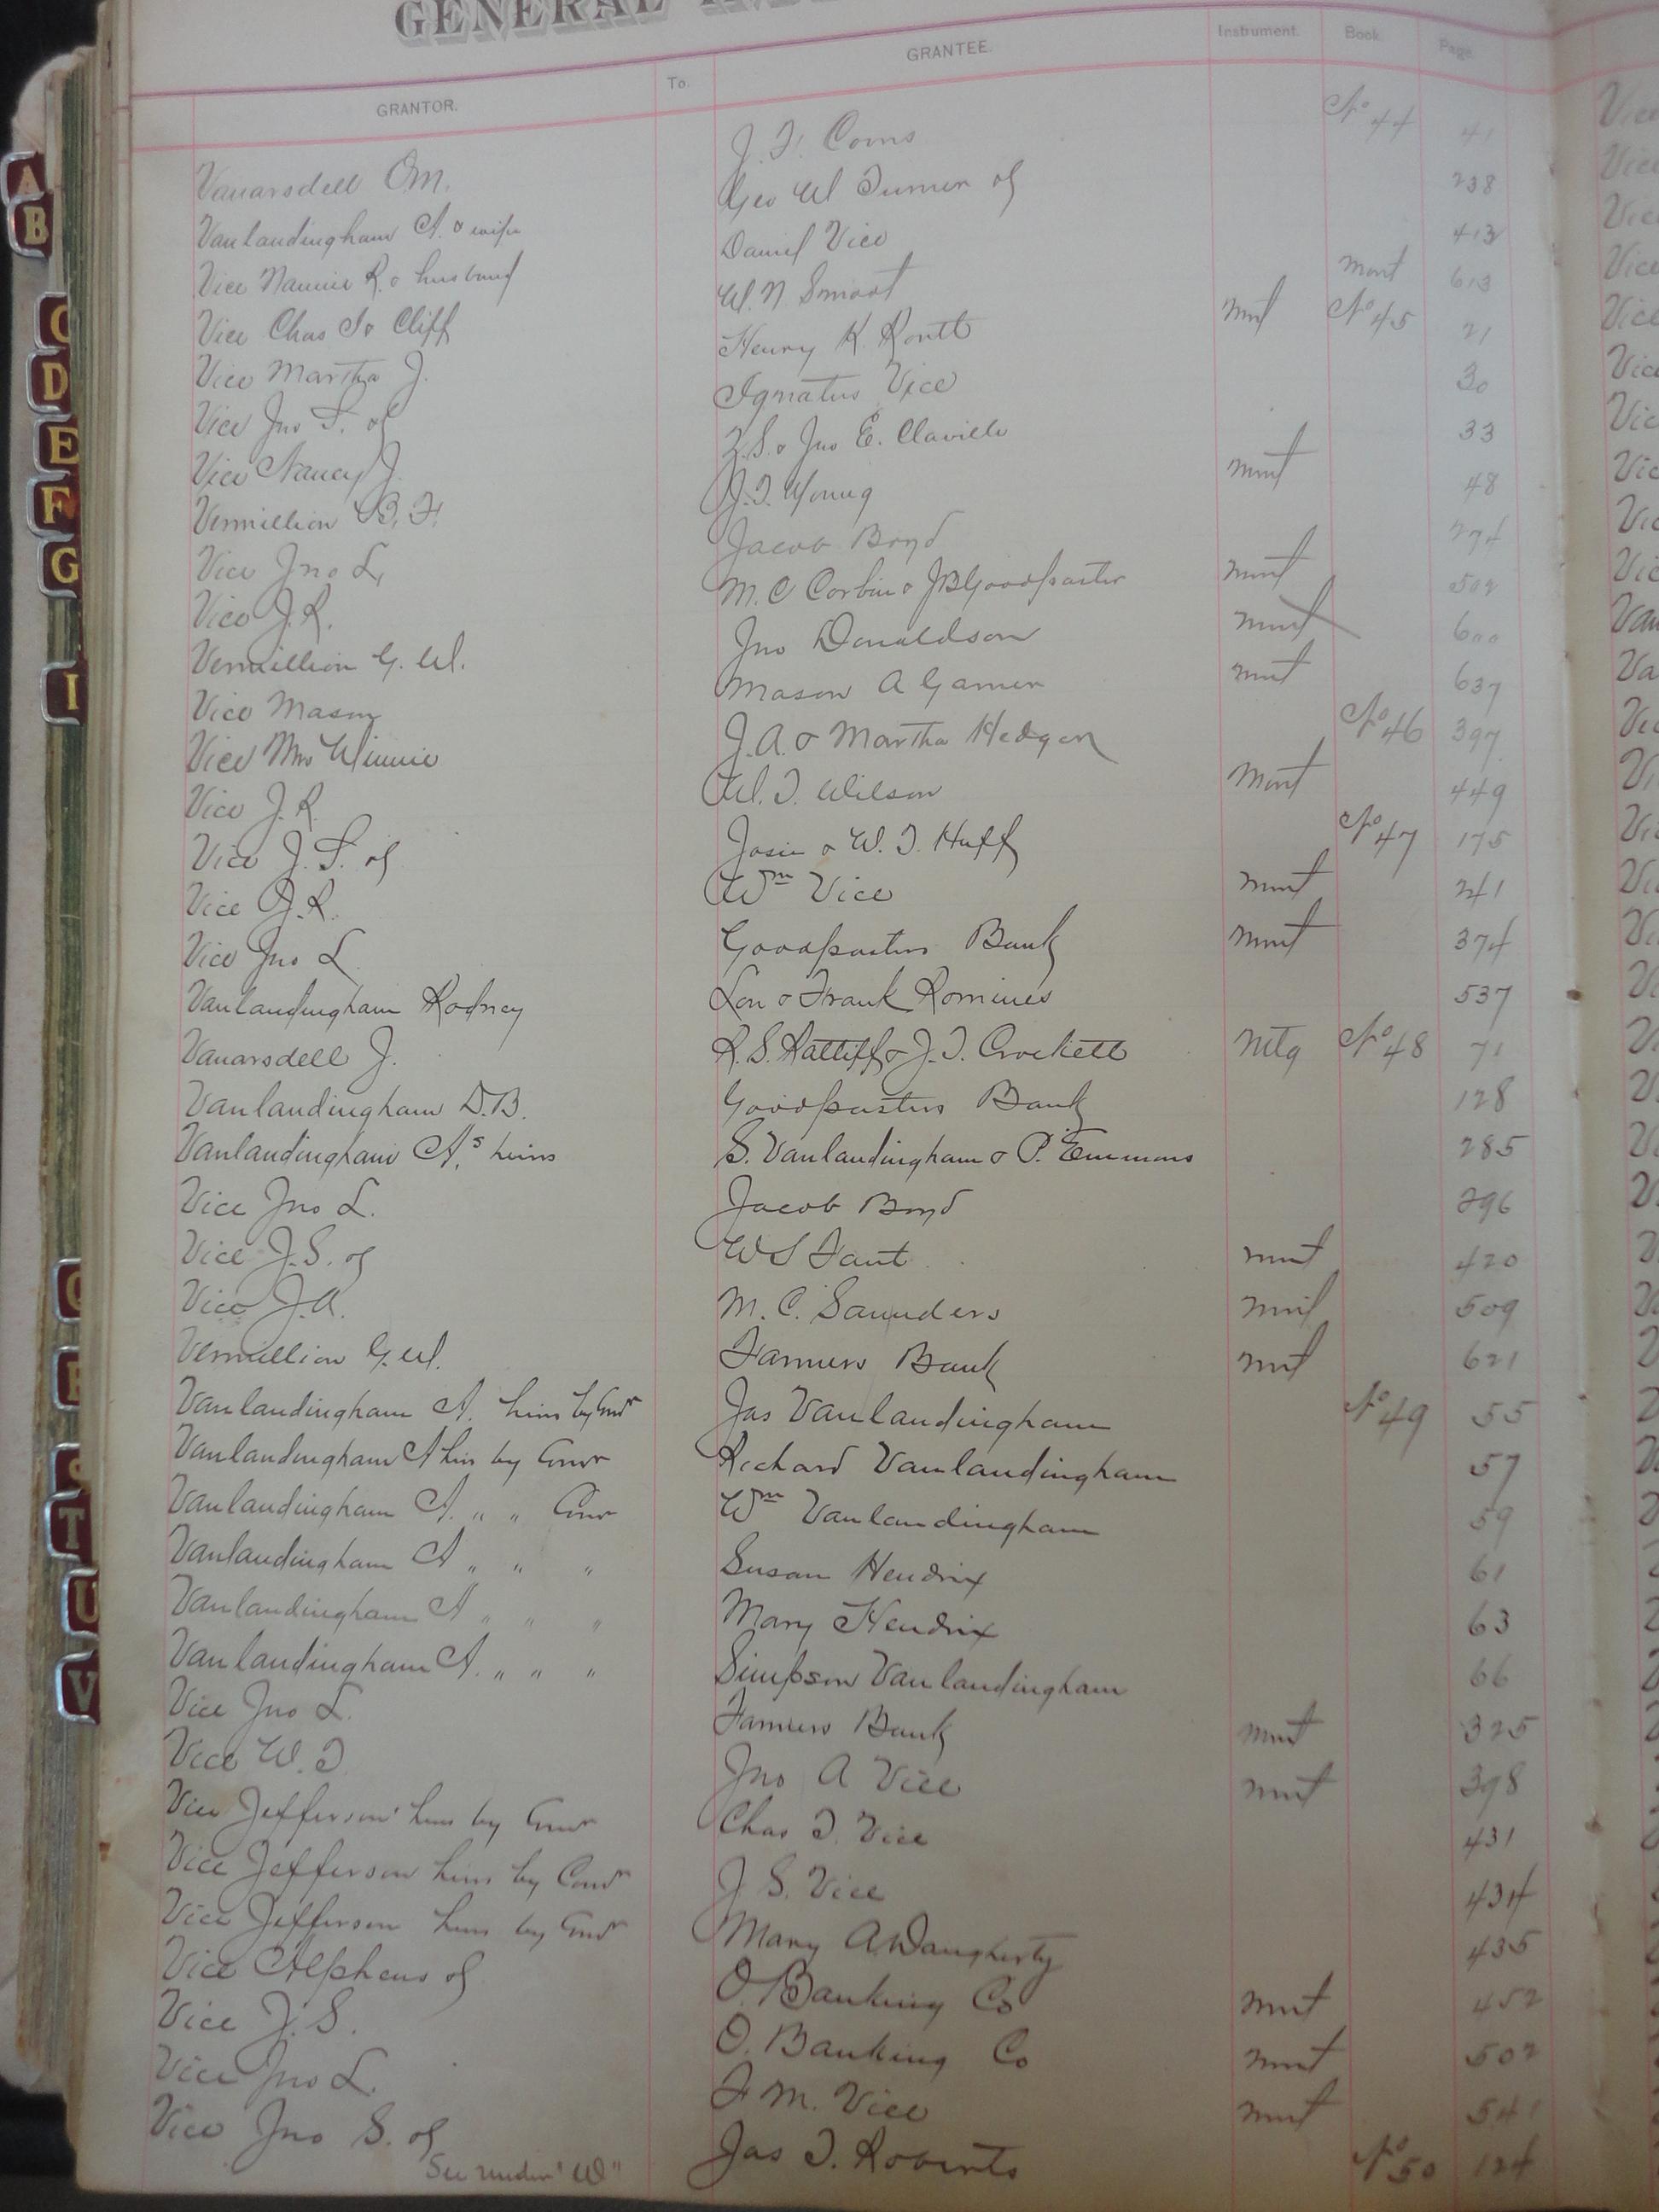 GENERAL
GRANTOR. To. GRANTEE. Instrument. Book. Page
Vanarsdell O.M. J. F. Corns No 44 41
Vanlandingham A. & wife Geo W Turner of 238
Vice Nannie R. & husband Daniel Vice 413
Vice Chas To Cliff W. N. Smoot Mort 613
Vice Martha J. Henry K. Routt Mort No 45 21
Vice Jno S. of Ignatus Vice 30
Vice Nancy J. Z. S. & Jno E. Claville 33
Vermillion B. F. J. T. Young Mort 48
Vice Jno L. Jacob Boyd 274
Vice J. R. M. C Corbin & JB Goodpaster Mort 502
Vermillion G. W. Jno Donaldson Mort 600
Vice Mason Mason A Garner Mort 637
Vice Mrs Winnie J. A. & Martha Hedger No 46 397
Vice J. R. W. T. Wilson Mort 449
Vice J. S. of Josie & W. T. Huff No 47 175
Vice J. R. Wm Vice Mort 241
Vice Jno L Goodpasters Bank Mort 374
Vanlandingham Rodney Lon & Frank Romines 537
Vanarsdell J. R. S. Ratliff & J. T. Crockett Mtg No 48 71
Vanlandingham D.B. Goodpasters Bank 128
Vanlandingham A.s heirs S. Vanlandingham & P. Emmons 285
Vice Jno L. Jacob Boyd 296
Vice J. S. of W S Fant Mort 420
Vice J. A. M. C. Saunders Mort 509
Vermillion G. W. Farmers Bank Mort 621
Vanlandingham A. heirs by Comr Jas Vanlandingham No 49 55
Vanlandingham A heirs by Comr Richard Vanlandingham 57
Vanlandingham A. " " Comr Wm Vanlandingham 59
Vanlandingham A " " " Susan Hendrix 61
Vanlandingham A " " " Mary Hendrix 63
Vanlandingham A. " " " Simpson Vanlandingham 66
Vice Jno L. Farmers Bank Mort 325
Vice W. T Jno A Vice Mort 398
Vice Jefferson heirs by Comr Chas T. Vice 431
Vice Jefferson heirs by Comr J. S. Vice 434
Vice Jefferson heirs by Comr Mary A. Daugherty 435
Vice Alpheus of O. Banking Co Mort 452
Vice J. S. O. Banking Co Mort 502
Vice Jno L. F M. Vice Mort 541
Vice Jno S. of Jas T. Roberts No 50 124
See under "W"
A
B
C
D
E
F
G
I
T
U
V